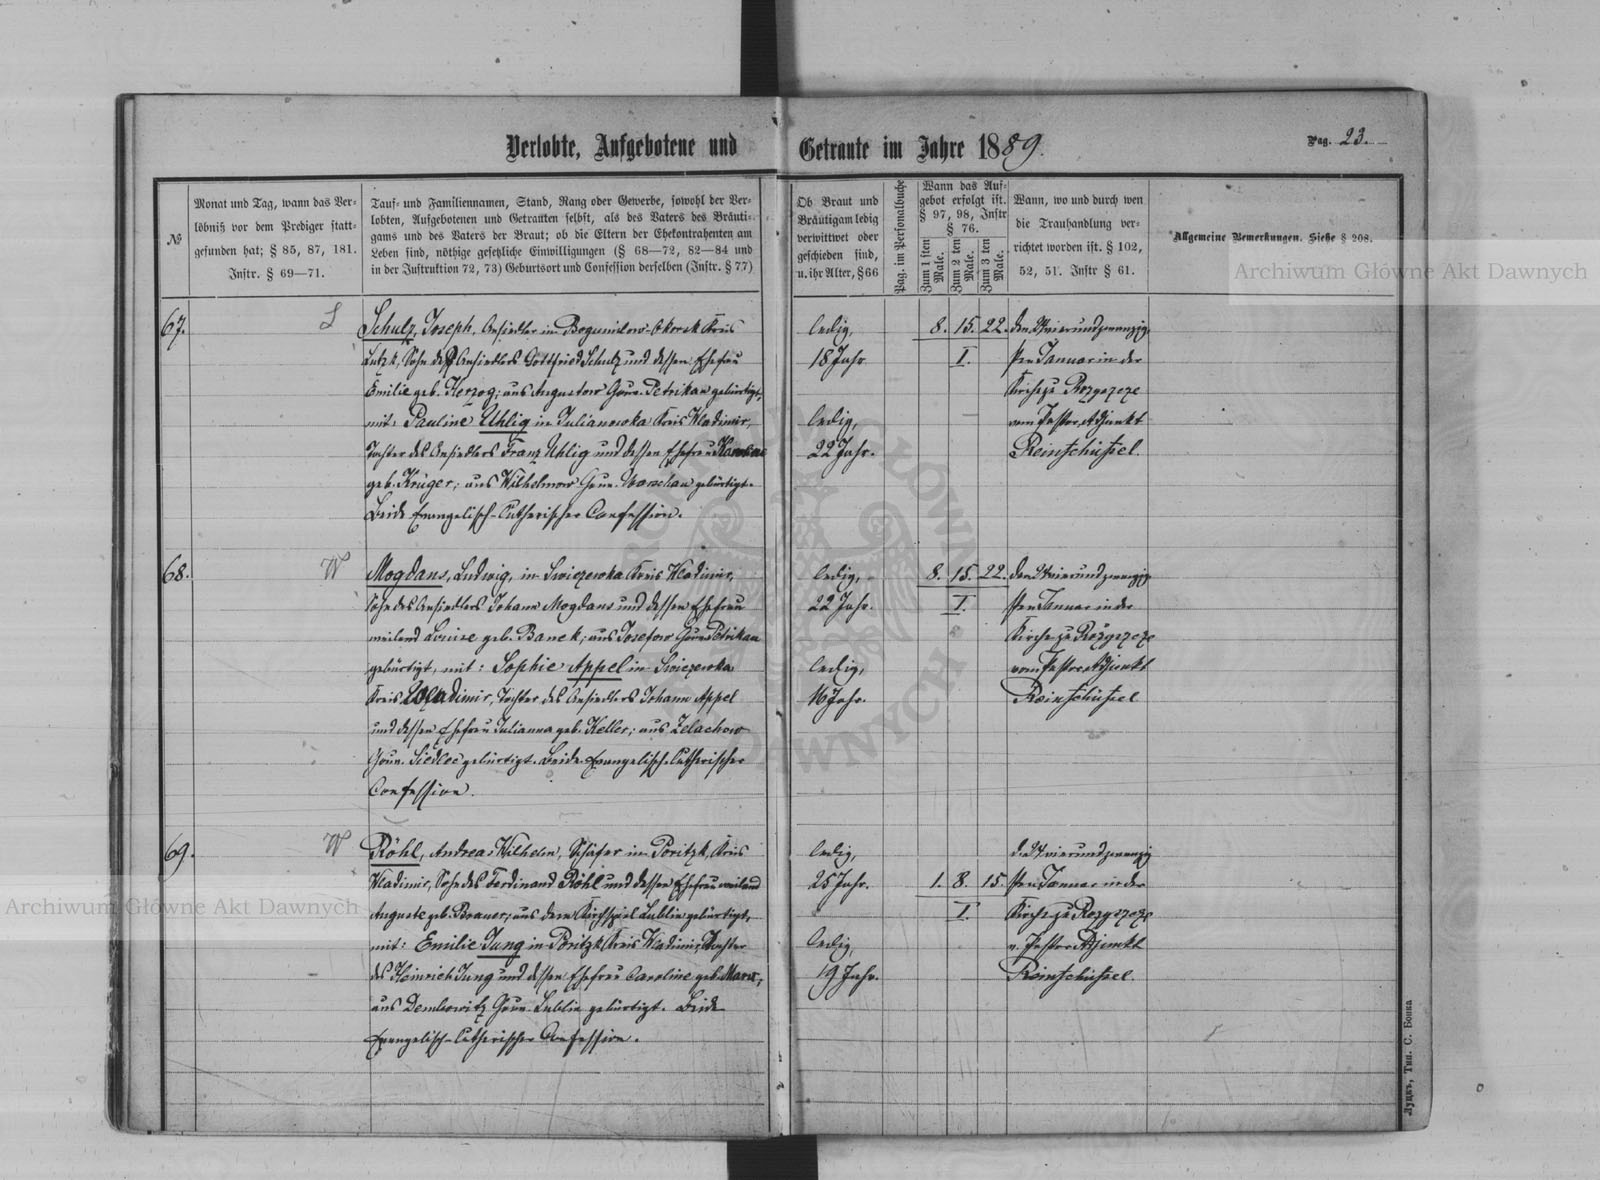 Verlobte, Aufgebotene und Getraute im Jahre 1889.
Pag. 23.
№
Monat und Tag, wann das Ver-
löbniß vor dem Prediger statt-
gefunden hat; § 85, 87, 181.
Instr. § 69—71.
Tauf- und Familiennamen, Stand, Rang oder Gewerbe, sowohl der Ver-
lobten, Aufgebotenen und Getrauten selbst, als des Vaters des Bräuti-
gams und des Vaters der Braut; ob die Eltern der Ehekontrahenten am
Leben sind, nöthige gesetzliche Einwilligungen (§ 68—72, 82—84 und
in der Instruktion 72, 73) Geburtsort und Confession derselben (Instr. § 77)
Ob Braut und
Bräutigam ledig
verwittwet oder
geschieden sind,
u. ihr Alter, § 66
Pag. im Personalbuche
Wann das Auf-
gebot erfolgt ist.
§ 97, 98, Instr
§ 76.
Zum 1 sten
Male.
Zum 2 ten
Male.
Zum 3 ten
Male.
Wann, wo und durch wen
die Trauhandlung ver-
richtet worden ist. § 102,
52, 51. Instr § 61.
Allgemeine Bemerkungen. Siehe § 208.
67.
Schulz, Joseph, Ansiedler in Kreis
Lutzk, Sohn des Ansiedlers Gottfried Schulz und dessen Ehefrau
Emilie geb. Herzog; aus Augustow Gouv. Petrikau gebürtigt,
mit: Pauline Uhlig in Julianowka Kreis Wladimir,
Tochter des Ansiedlers Franz Uhlig und dessen Ehefrau Karoline
geb. Krüger; aus Wilhelmow Gouv. Warschau gebürtigt.
Beide Evangelisch-Lutherischer Confession.
ledig,
18 Jahr.
ledig,
22 Jahr.
8. 15. 22.
I.
den 24 vierundzwanzig
sten Januar in der
Kirche zu Rozyszcze
vom Pastor Adjunkt
Reinschüssel.
68.
W
Mogdans, Ludwig, in Swiczewka Kreis Wladimir,
Sohn des Ansiedlers Johann Mogdans und dessen Ehefrau
weiland Louise geb. Banek; aus Josefow Gouv. Petrikau
gebürtigt, mit: Sophie Appel in Swiczewka
Kreis Wladimir, Tochter des Ansiedlers Johann Appel
und dessen Ehefrau Julianna geb. Keller; aus Zelachow
Gouv. Siedlec gebürtigt. Beide Evangelisch-Lutherischer
Confession.
ledig,
22 Jahr.
ledig,
16 Jahr.
8. 15. 22.
I.
den 24 vierundzwanzig
sten Januar in der
Kirche zu Rozyszcze
vom Pastor Adjunkt
Reinschüssel
69.
W
Röhl, Andreas Wilhelm, Schäfer in Poritzk, Kreis
Wladimir, Sohn des Ferdinand Röhl und dessen Ehefrau weiland
Auguste geb. Brauer; aus dem Kirchspiel Lublin gebürtigt,
mit: Emilie Jung in Poritzk Kreis Wladimir, Tochter
des Heinrich Jung und dessen Ehefrau Caroline geb. Marx;
aus Dembowitz Gouv. Lublin gebürtigt. Beide
Evangelisch-Lutherischer Confession.
ledig,
25 Jahr.
ledig,
19 Jahr.
1. 8. 15.
I.
d. 24 vierundzwanzig
sten Januar in der
Kirche zu Rozyszcze
v. Pastor Adjunkt
Reinschüssel.
Луцкъ, Тип. С. Бонка
Archiwum Główne Akt Dawnych
Archiwum Główne Akt Dawnych